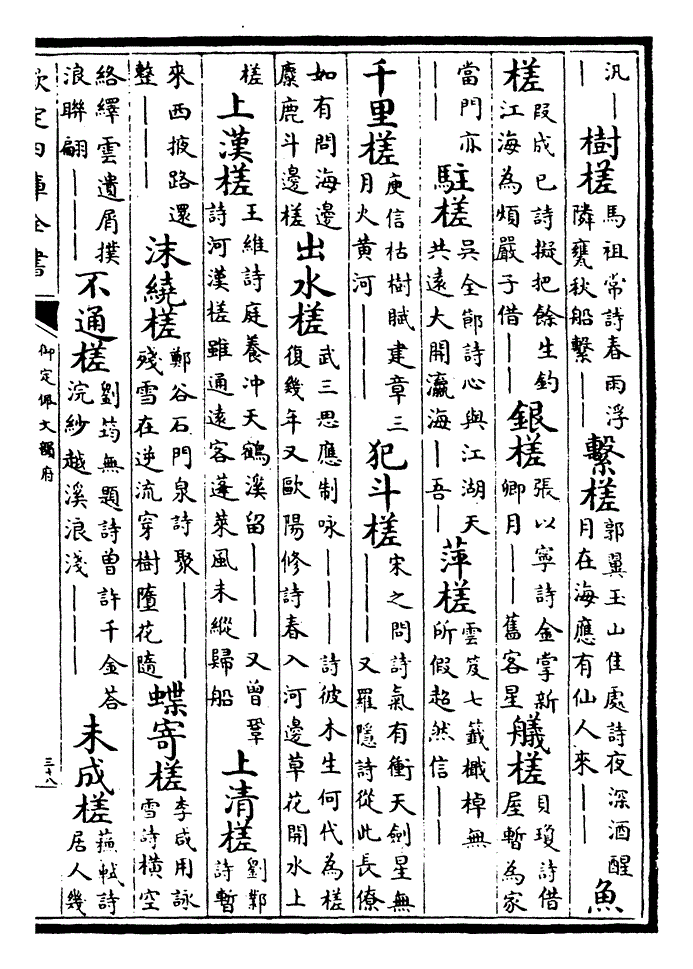 汎｜｜樹槎馬祖常詩春雨浮隣甕秋船繫｜｜繫槎郭翼玉山佳處詩夜深酒醒月在海應有仙人來｜｜魚
槎段成己詩擬把餘生釣江海為煩嚴子借｜｜銀槎張以寧詩金掌新卿月｜｜舊客星艤槎貝瓊詩借屋暫為家
當門亦｜｜駐槎吳全節詩心與江湖天共遠大開瀛海｜吾｜萍槎雲笈七籤檝棹無所假超然信｜｜
千里槎庾信枯樹賦建章三月火黄河｜｜｜犯斗槎宋之問詩氣有衝天劍星無｜｜｜又羅隱詩從此長僚
如有問海邊麋鹿斗邊槎出水槎武三思應制咏｜｜｜詩彼木生何代為槎復幾年又歐陽修詩春入河邊草花開水上
槎上漢槎王維詩庭養冲天鶴溪留｜｜｜又曾鞏詩河漢槎雖通遠客蓬萊風未縱歸船上清槎劉鄴詩暫
來西掖路還整｜｜｜沫繞槎鄭谷石門泉詩聚｜｜｜殘雪在逆流穿樹墮花隨蝶寄槎李咸用詠雪詩横空
絡繹雲遺屑撲浪聯翩｜｜｜不通槎劉筠無題詩曾許千金荅浣紗越溪浪淺｜｜｜未成槎蘇軾詩居人幾
欽定四庫全書
御定佩文韻府
三十八